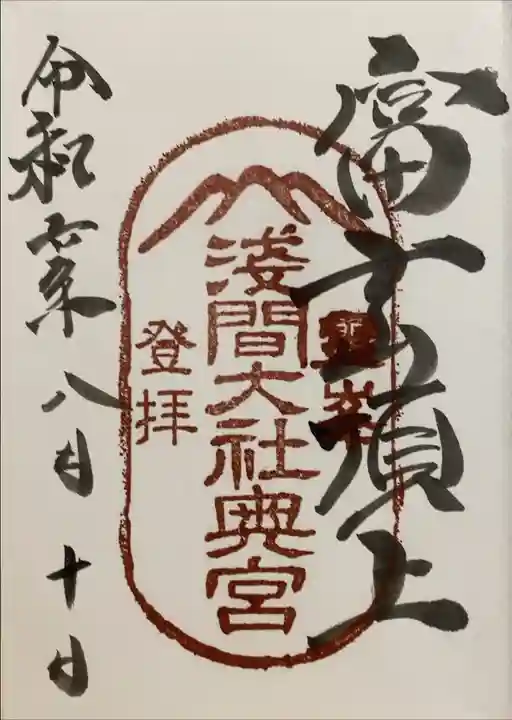 富士頂上
霊峯
淺間大社奥宮
登拝
令和六年八月十日